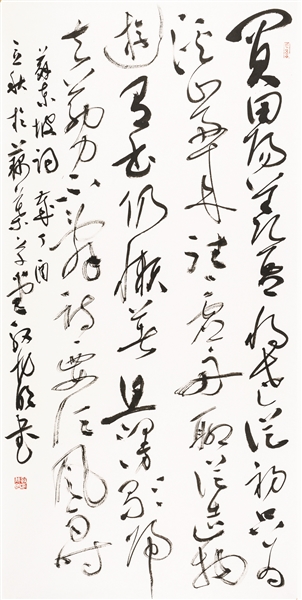 買田陽羨吾將老從初只為
溪山好來往一虛舟聊從造物
遊有書仍懶著且漫歌歸
去筋力不辭詩要須風雨時
蘇東坡詞歲丁酉
立秋於藕華草堂 書